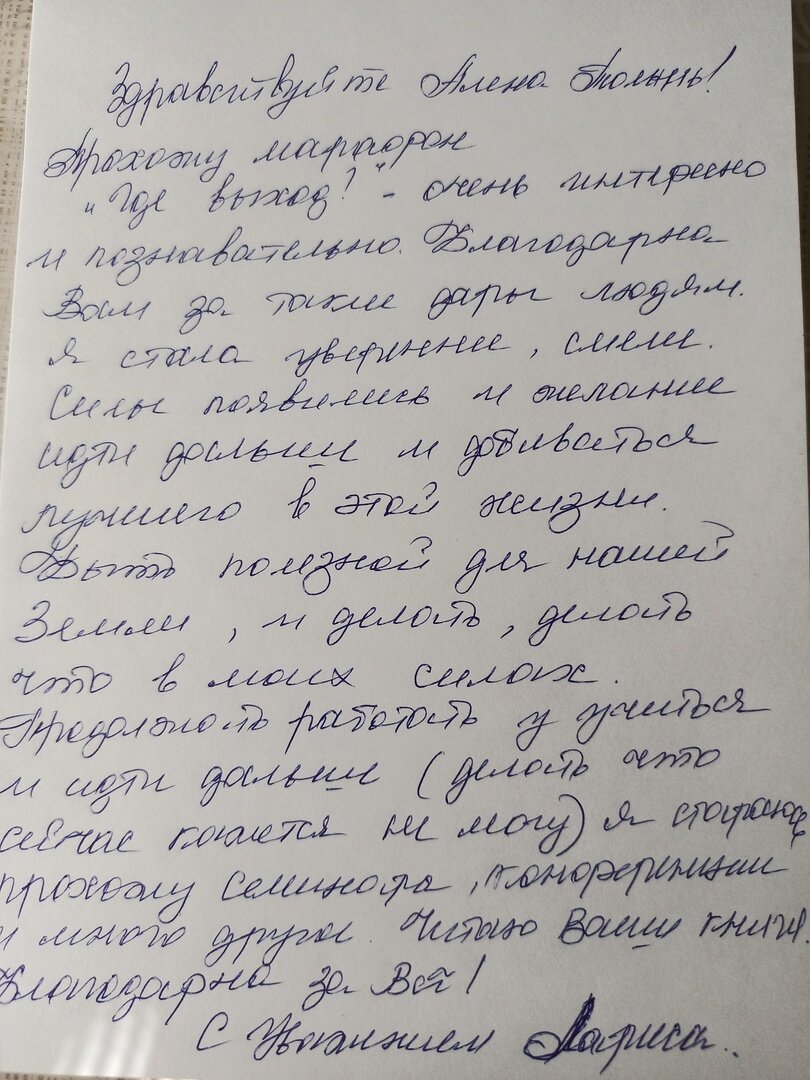 Здравствуйте Алена Полынь!
Прохожу марафон
"Где выход?" - очень интересно
и познавательно. Благодарна
Вам за такие дары людям.
Я стала увереннее, смелее.
Силы появились и желание
идти дальше и добиваться
лучшего в этой жизни.
Быть полезной для нашей
Земли, и делать, делать
что в моих силах.
Продолжать работать у учиться
и идти дальше (делать что
сейчас кажется не могу) я стараюсь
прохожу семинара, конференции
и много другое. Читаю Ваши книги.
Благодарна за Всё!
С Уважением Лариса..